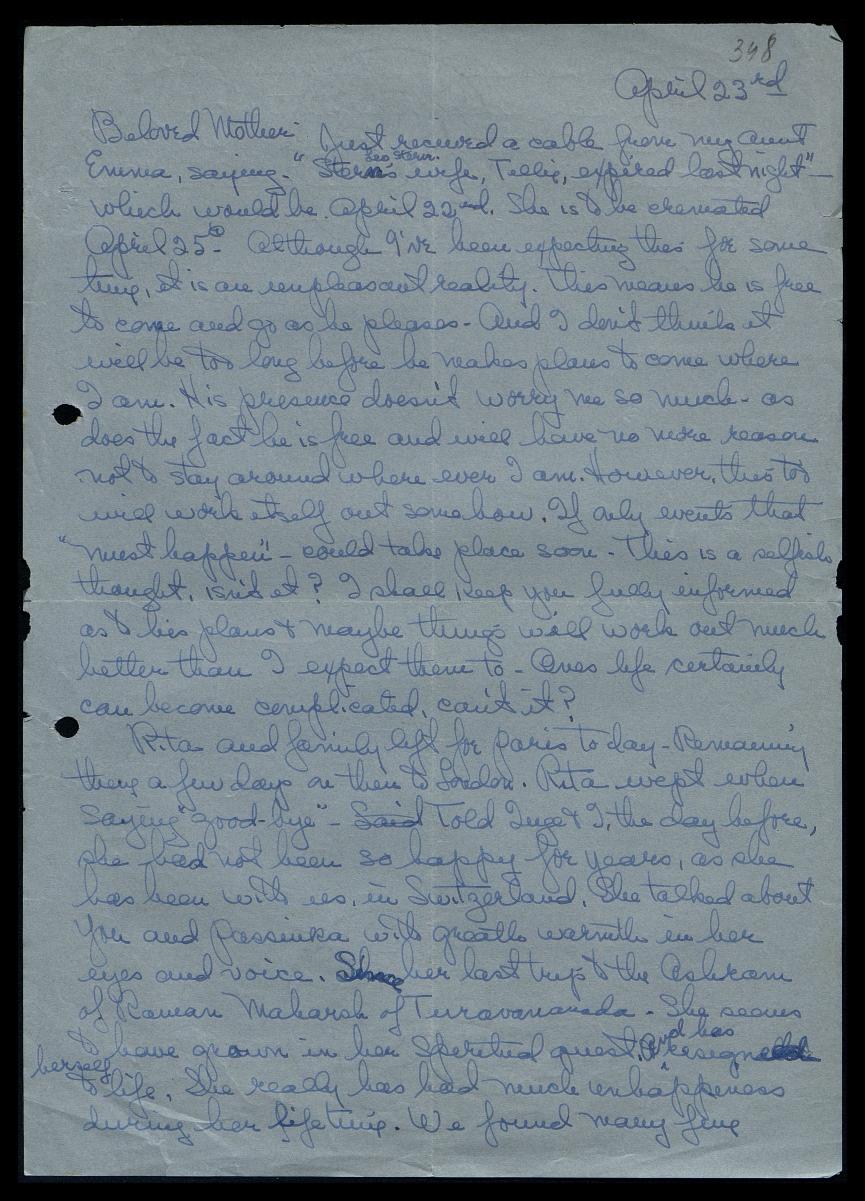 348
April 23rd
Beloved Mother: Just received a cable from my aunt
Leo Stern.
Emma, saying - "Stern's wife, Tillie, expired last night" -
which would be April 22nd. She is to be cremated
April 25th - Although I've been expecting this for some
time, it is an unpleasant reality. This means he is free
to come and go as he pleases - And I don't think it
will be too long before he makes plans to come where
I am. His presence doesn't worry me so much - as
does the fact he is free and will have no more reason
not to stay around where ever I am. However, this too
will work itself out somehow. If only events that
"must happen" - could take place soon - This is a selfish
thought, isn't it? I shall keep you fully informed
as to his plans & maybe things will work out much
better than I expect them to - Ones life certainly
can become complicated, can't it?
Rita and family left for Paris to day - Remaining
there a few days on then to London. Rita wept when
saying "good-bye" - Said Told Inge & I, the day before,
she had not been so happy for years, as she
has been with us, in Switzerland. She talked about
You and Passinka with great warmth in her
eyes and voice. Since her last trip to the Ashram
of Raman Maharsh of Turavanamada - She seems
to have grown in her Spiritual quest. And has resigned
herself
to life. She really has had much unhappiness
during her lifetime. We found many fine